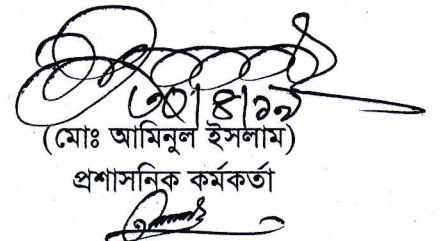 ৩০|৪|১৯
(মোঃ আমিনুল ইসলাম)
প্রশাসনিক কর্মকর্তা